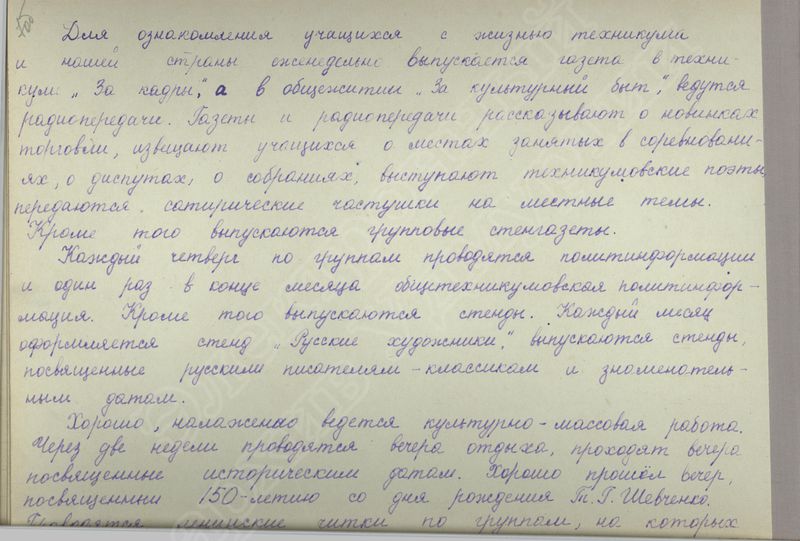 Для ознакомления учащихся с жизнью техникума
и нашей страны еженедельно выпускается газета в техни-
куме „За кадры", а в общежитии „За культурный быт", ведутся
радиопередачи. Газеты и радиопередачи рассказывают о новинках
торговли, извещают учащихся о местах занятых в соревновани-
ях, о диспутах, о собраниях, выступают техникумовские поэты
передаются сатирические частушки на местные темы.
Кроме того выпускаются групповые стенгазеты.
Каждый четверг по группам проводятся политинформации
и один раз в конце месяца общетехникумовская политинфор-
мация. Кроме того выпускаются стенды. Каждый месяц
оформляется стенд „Русские художники", выпускаются стенды,
посвященные русским писателям-классикам и знаменатель-
ным датам.
Хорошо, налаженно ведется культурно-массовая работа.
Через две недели проводятся вечера отдыха, проходят вечера
посвященные историческим датам. Хорошо прошёл вечер,
посвященный 150-летию со дня рождения Т.Г. Шевченко.
Проводятся ленинские читки по группам, на которых